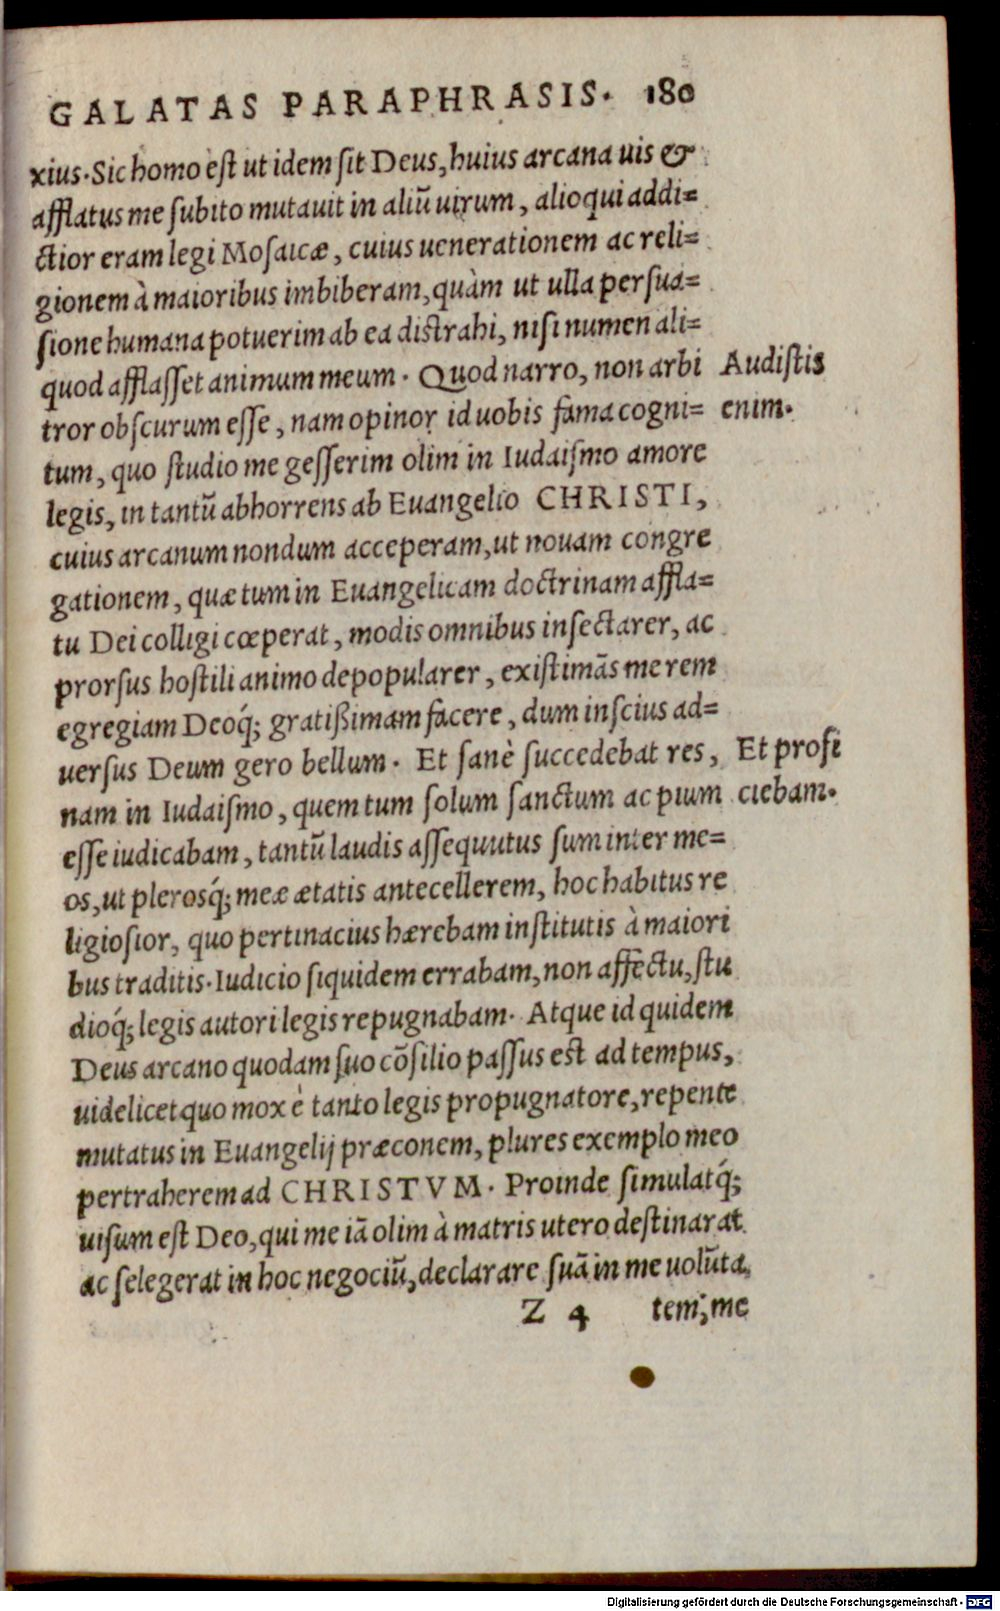 GALATAS PARAPHRASIS. 180
xius. Sic homo est ut idem sit Deus, huius arcana uis &
afflatus me subito mutauit in aliũ uirum, alioqui addi=
ctior eram legi Mosaicæ, cuius uenerationem ac reli=
gionem à maioribus imbiberam, quàm ut ulla persua=
sione humana potuerim ab ea distrahi, nisi numen ali=
quod afflasset animum meum. Quod narro, non arbi
Audistis
tror obscurum esse, nam opinor id uobis fama cogni=
enim.
tum, quo studio me gesserim olim in Iudaismo amore
legis, in tantũ abhorrens ab Euangelio CHRISTI,
cuius arcanum nondum acceperam, ut nouam congre
gationem, quæ tum in Euangelicam doctrinam affla=
tu Dei colligi cœperat, modis omnibus insectarer, ac
prorsus hostili animo depopularer, existimãs me rem
egregiam Deoq́; gratißimam facere, dum inscius ad=
uersus Deum gero bellum. Et sanè succedebat res,
Et profi
nam in Iudaismo, quem tum solum sanctum ac pium
ciebam.
esse iudicabam, tantũ laudis assequutus sum inter me=
os, ut plerosq́; meæ ætatis antecellerem, hoc habitus re
ligiosior, quo pertinacius hærebam institutis à maiori
bus traditis. Iudicio siquidem errabam, non affectu, stu
dioq́; legis autori legis repugnabam. Atque id quidem
Deus arcano quodam suo cõsilio passus est ad tempus,
uidelicet quo mox è tanto legis propugnatore, repente
mutatus in Euangelij præconem, plures exemplo meo
pertraherem ad CHRISTVM. Proinde simulatq́;
uisum est Deo, qui me iã olim à matris utero destinarat
ac selegerat in hoc negociũ, declarare suã in me uolũta
Z 4 tem; me
Digitalisierung gefördert durch die Deutsche Forschungsgemeinschaft - DFG